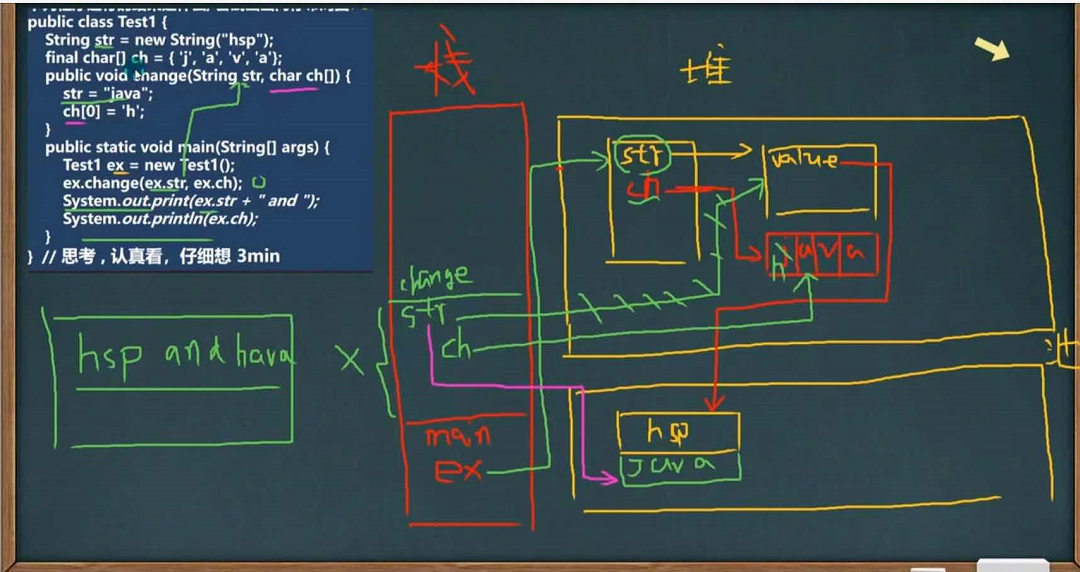 public class Test1 {
String str = new String("hsp");
final char[] ch = { 'j', 'a', 'v', 'a'};
public void change(String str, char ch[]) {
str = "java";
ch[0] = 'h';
}
public static void main(String[] args) {
Test1 ex = new Test1();
ex.change(ex.str, ex.ch);
System.out.print(ex.str + " and ");
System.out.println(ex.ch);
}
} // 思考，认真看，仔细想 3min
栈
堆
str
ch
value
h a v a
change
str
ch
hsp and hava
main
ex
hsp
java